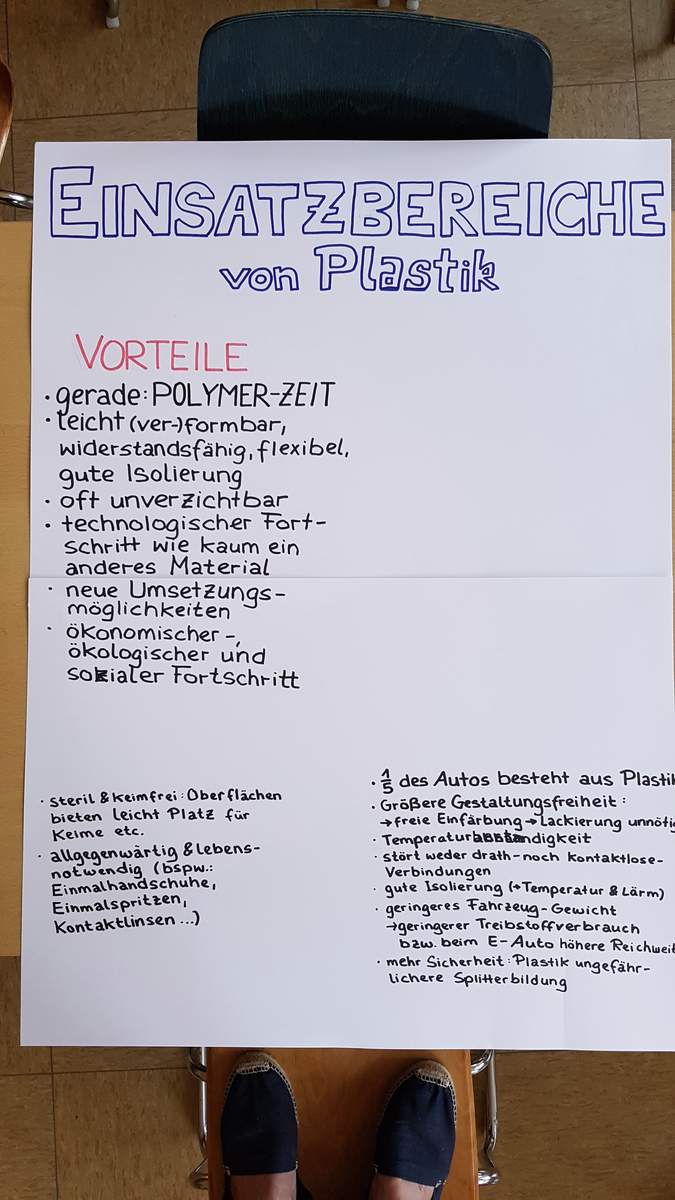 EINSATZBEREICHE
von Plastik
VORTEILE
· gerade: POLYMER-ZEIT
· leicht (ver-)formbar,
widerstandsfähig, flexibel,
gute Isolierung
· oft unverzichtbar
· technologischer Fort-
schritt wie kaum ein
anderes Material
· neue Umsetzungs-
möglichkeiten
· ökonomischer-,
ökologischer und
sozialer Fortschritt
· steril & keimfrei: Oberflächen
bieten leicht Platz für
Keime etc.
· allgegenwärtig & lebens-
notwendig (bspw.:
Einmalhandschuhe,
Einmalspritzen,
Kontaktlinsen ...)
· 1/5 des Autos besteht aus Plastik
· Größere Gestaltungsfreiheit:
→ freie Einfärbung → Lackierung unnötig
· stört weder drath- noch kontaktlose-
Verbindungen
· gute Isolierung (→ Temperatur & Lärm)
· geringeres Fahrzeug-Gewicht
→ geringerer Treibstoffverbrauch
bzw. beim E-Auto höhere Reichweit
· mehr Sicherheit: Plastik ungefähr-
lichere Splitterbildung